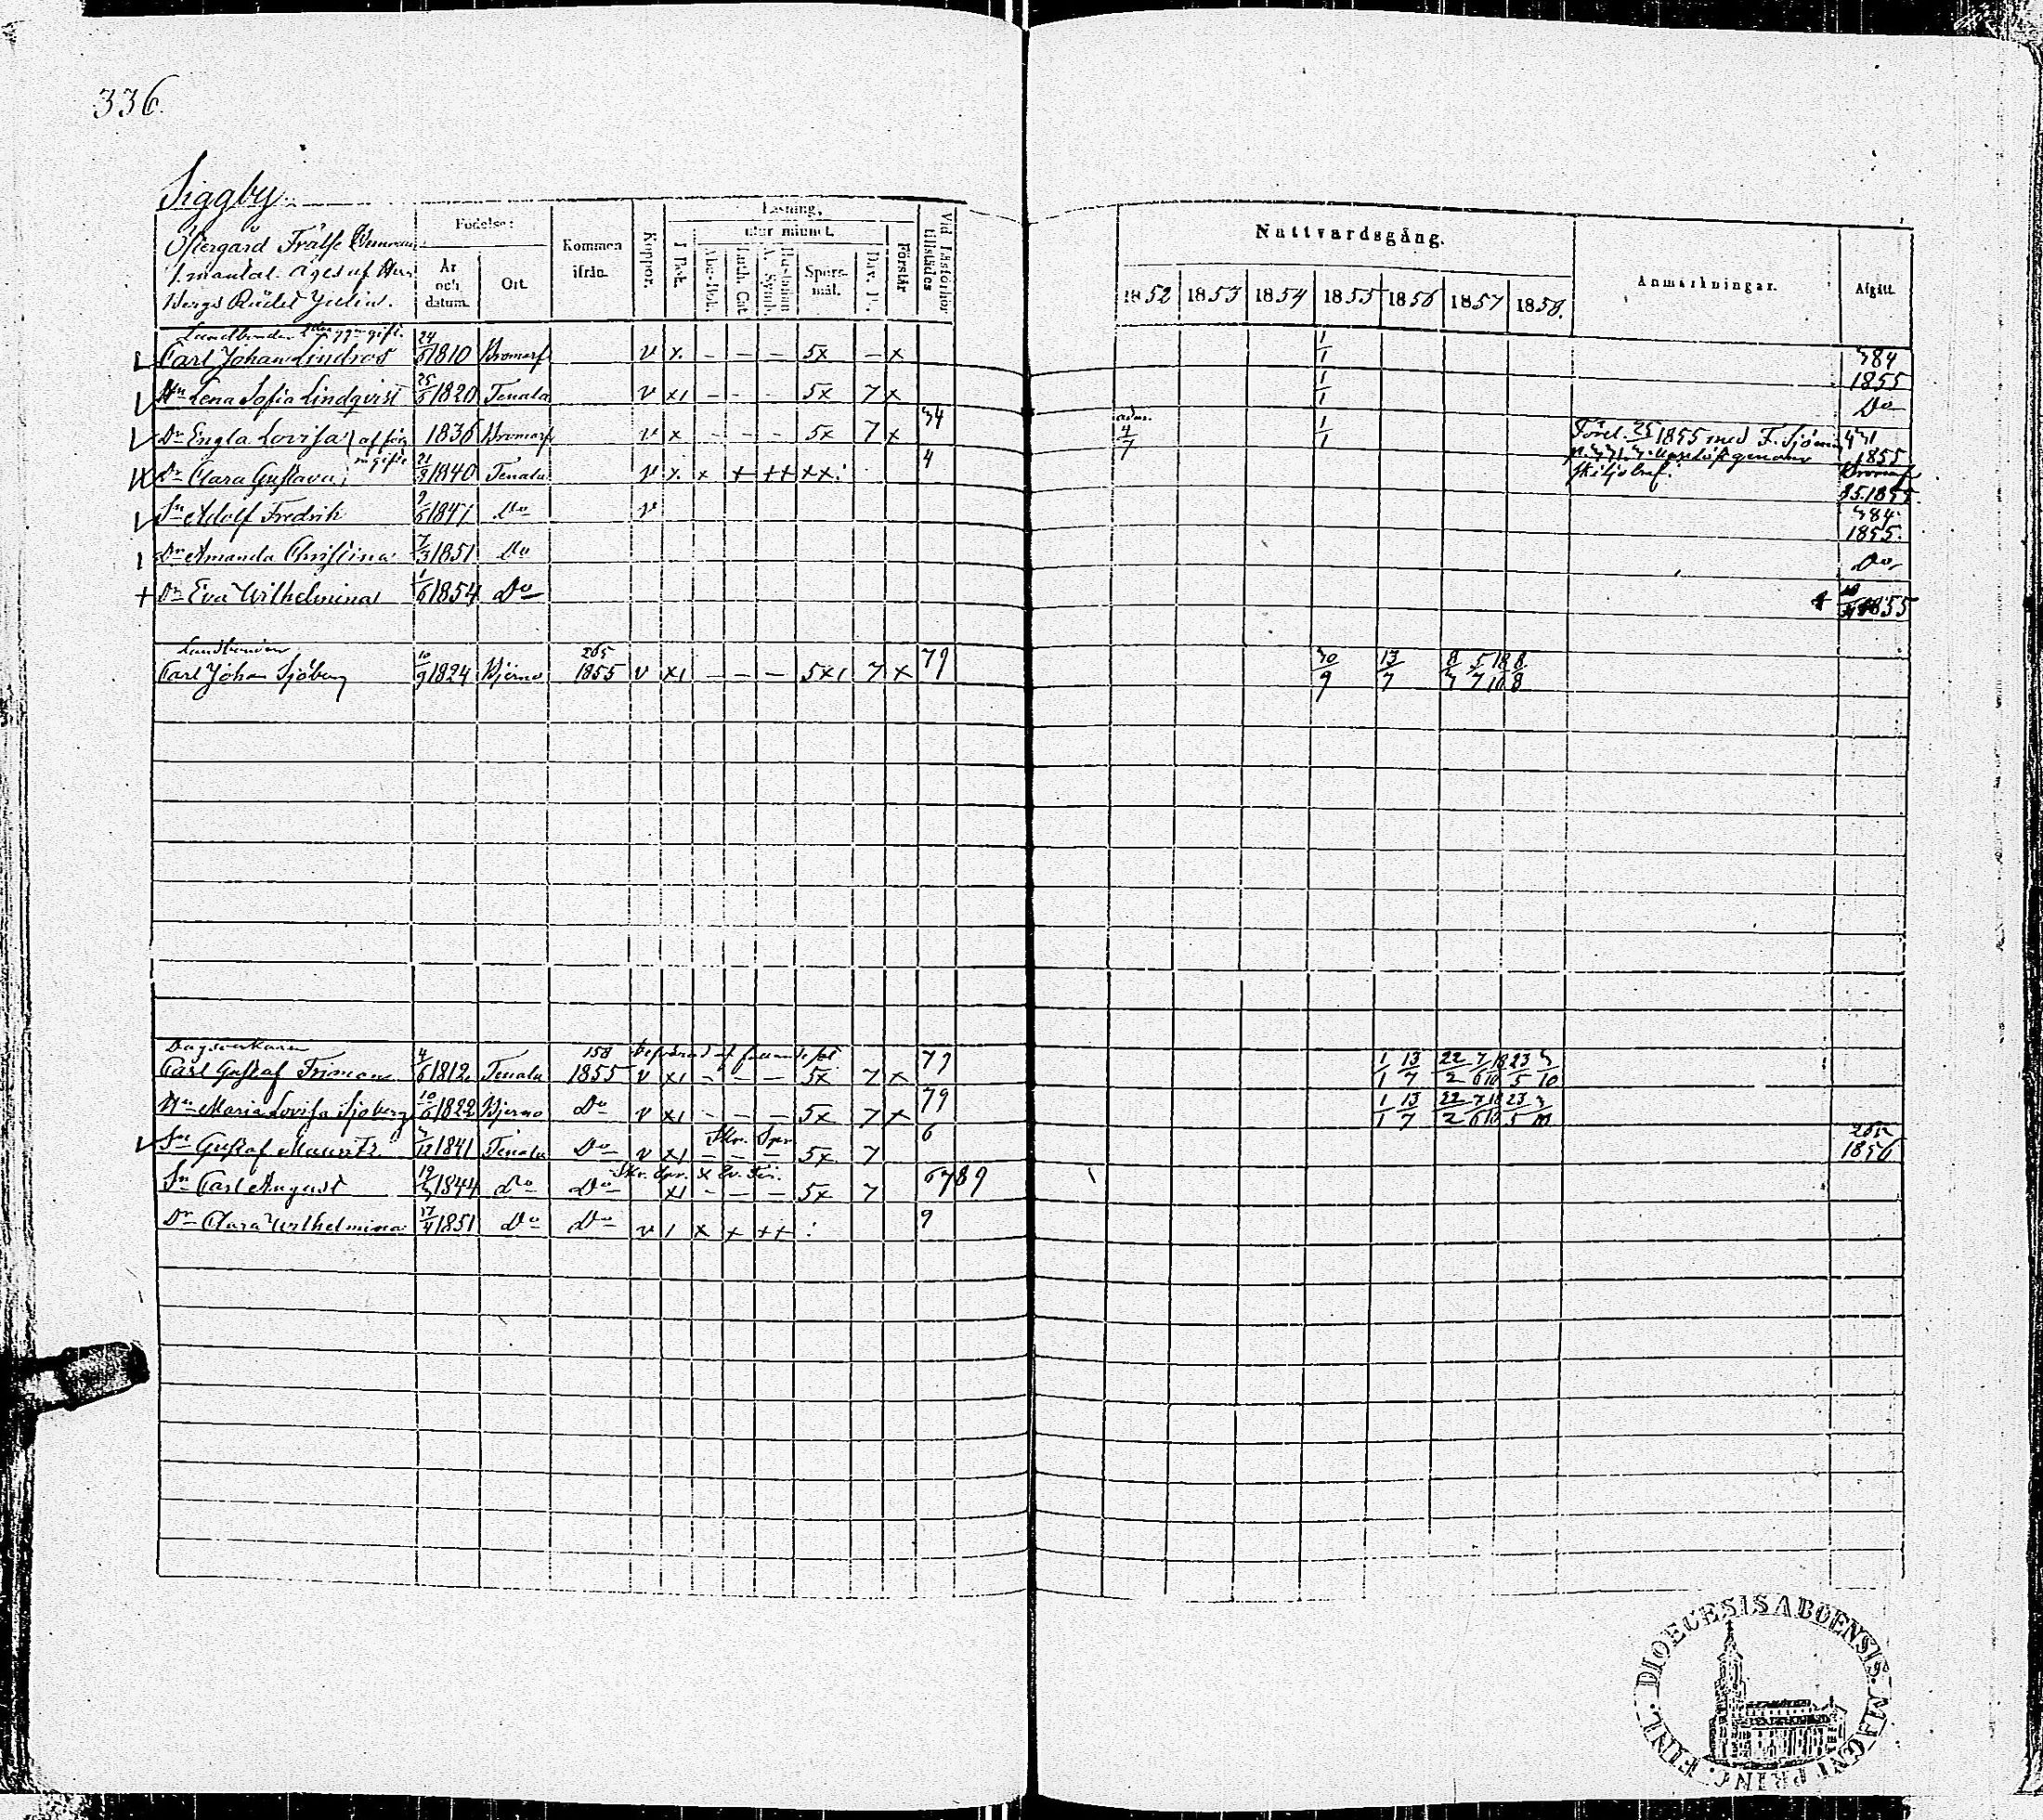 336.
Siggby
Östergård Frälse Hemman
1. mantal. Äges af Herr
Bergs Rådet Julin.
Födelse:
År och datum.
Ort.
Kommen ifrån.
Koppor.
Läsning,
utur minnet.
I Bok.
Abc-Bok.
Luth. Cat
Hustaflan A. Symb.
Spörs-mål.
Dav. P.
Förstår
Vid Läsförhör tillstädes
Nattvardsgång.
1852 1853 1854 1855 1856 1857 1858.
Anmärkningar.
Afgått.
Landbonden 2dra ggn gift.
Carl Johan Lindros 24/6 1810 Bromarf v x. – – – 5x – x 1/1 384 1855
Hu Lena Sofia Lindqvist 25/6 1820 Tenala v x1 – – – 5x 7 x 1/1 Do
Dr Engla Lovisa 1836 Bromarf v x – – – 5x 7 x 34 adm. 4/7 1/1 1855 med F. Sjöman 1855
m gifte
Dr Clara Gustava 21/9 1840 Tenala v x. x + ++ xx: 4 skiljobref. Bromarf 1855.
Sn Adolf Fredrik 9/6 1847 Do v 384 1855.
Dr Amanda Christina 7/3 1851 Do Do
+ Dr Eva Wilhelmina 1/6 1854 Do + 1855
Landbonden
Carl Johan Sjöberg 10/9 1824 Bjerno 265 1855 v x1 – – – 5x1 7 x 79 30/9 13/7 8/3 5/7 18/10 8/8
Dagsverkaren
Carl Gustaf Friman 4/6 1812 Tenala 158 1855 v x1 – – – 5x 7 x 79 1/1 13/7 22/2 7/6 18/10 23/5 3/10
Hu Maria Lovisa Sjöberg 10/6 1822 Bjerno Do v x1 – – – 5x 7 x 79 1/1 13/7 22/2 7/6 18/10 23/5 3/10
Sn Gustaf Mauritz 3/12 1841 Tenala Do v x1 – – – 5x 7 6 265 1856
Sn Carl August 19/3 1844 Do Do x1 – – – 5x 7 6789
Dr Clara Wilhelmina 17/4 1851 Do Do v 1 x + ++ : 9
DIOECESIS ABOENSIS. MAGNI PRINC. FINL.